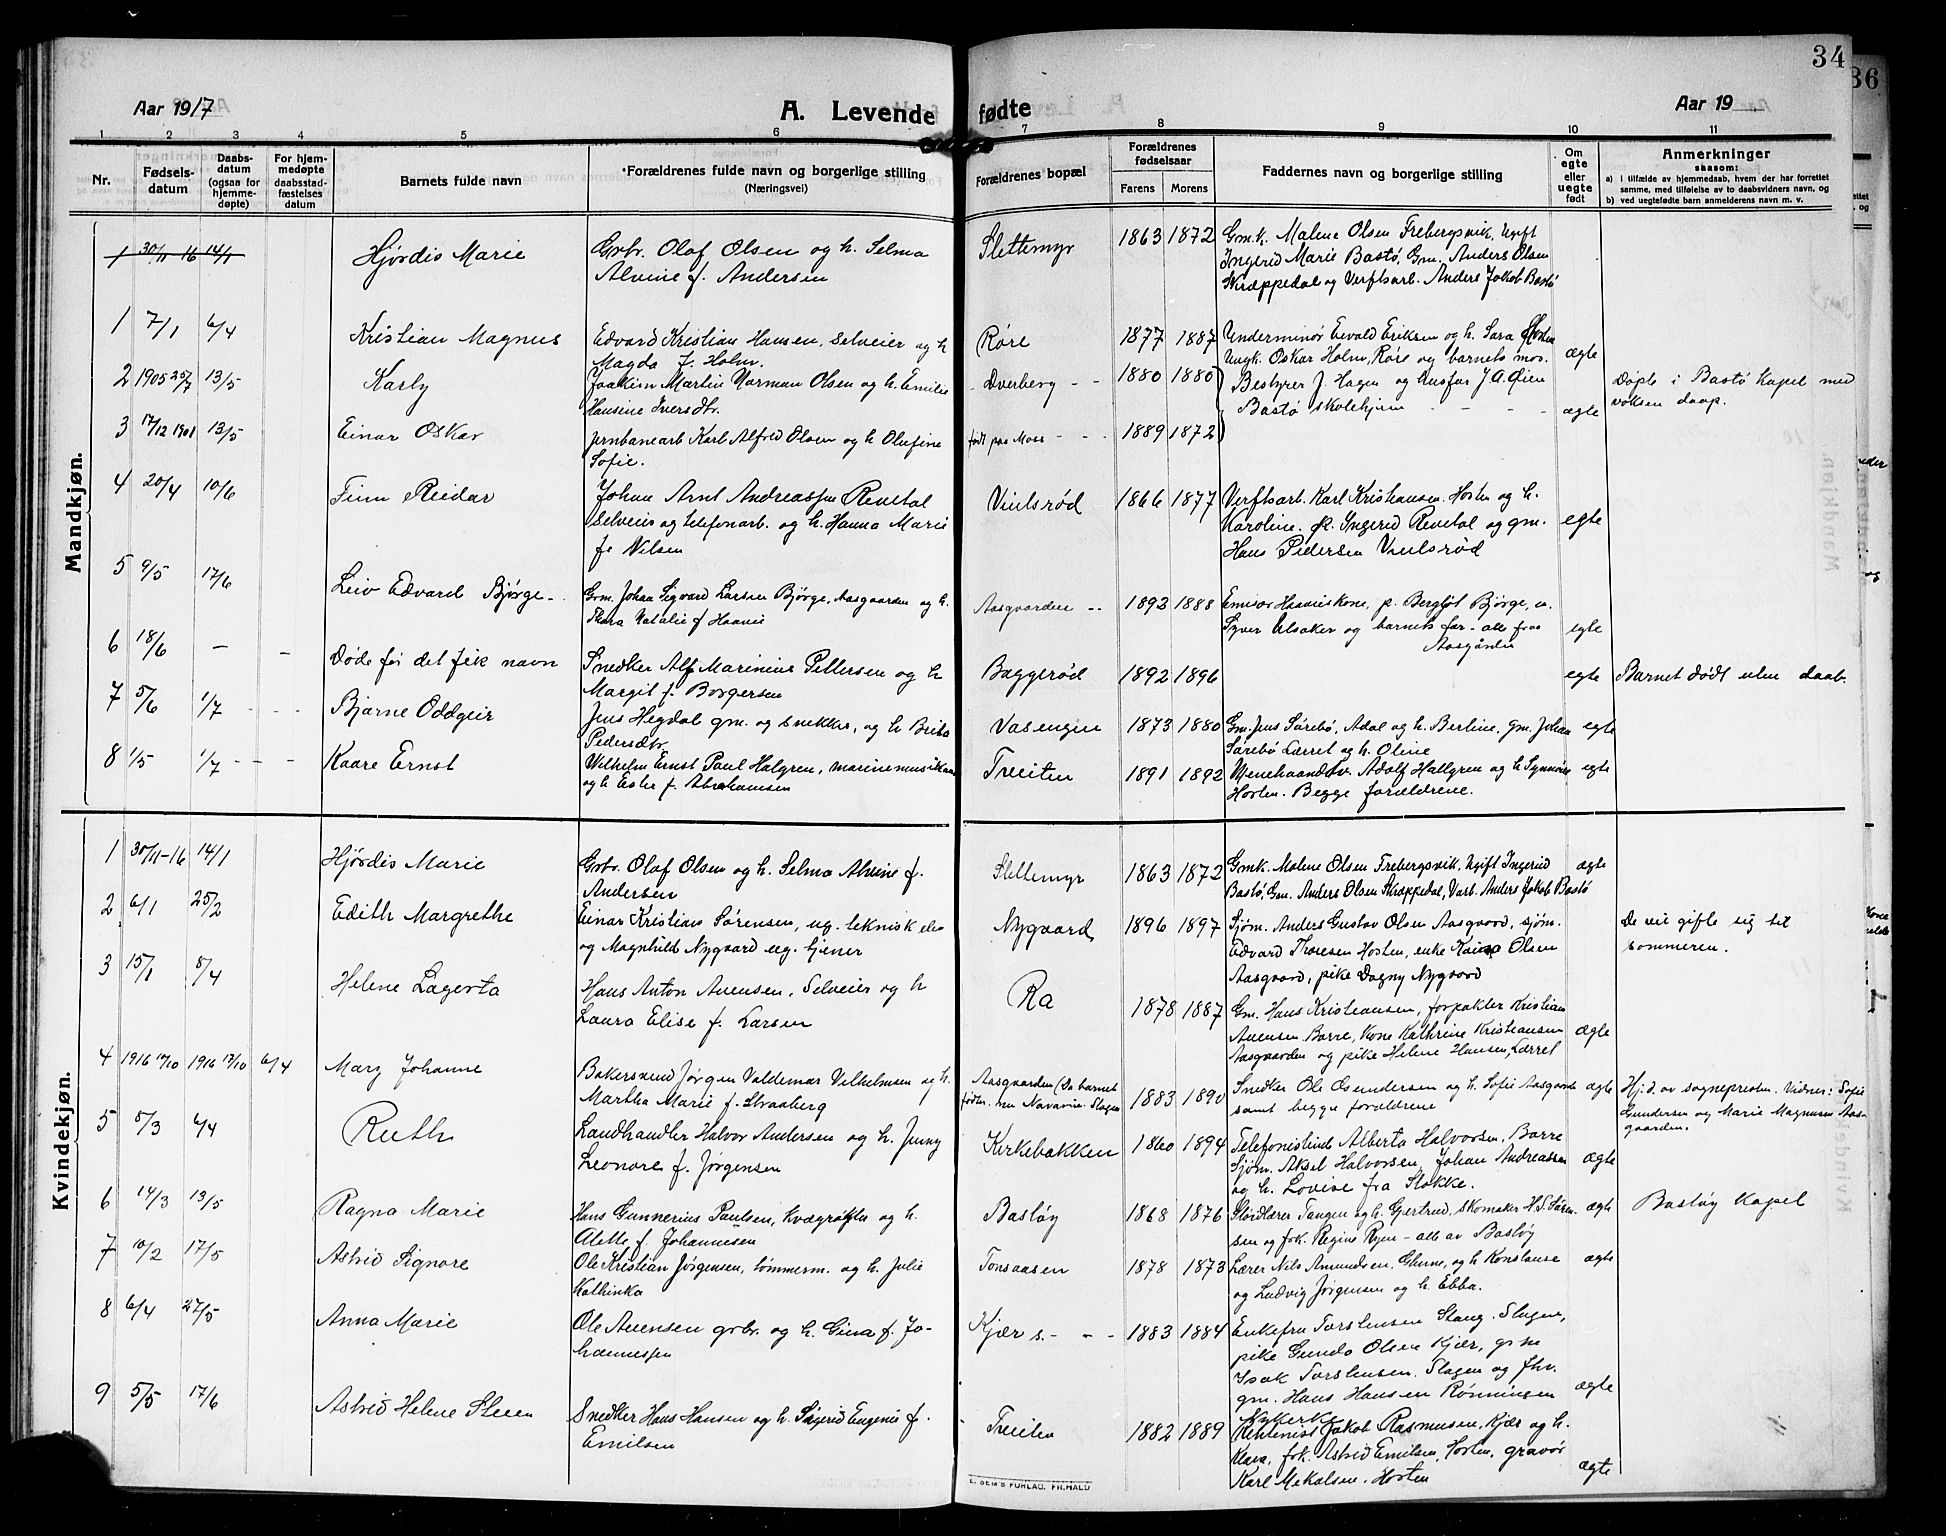 34
36
Aar 1917
A. Levende fødte
Aar 19
1 2 3 4 5 6 7 8 9 10 11
Nr.
Fødsels-
datum
Daabs-
datum
(ogsaa for
hjemme-
døpte)
For hjem-
medøpte
daabsstad-
fæstelses
datum
Barnets fulde navn
Forældrenes fulde navn og borgerlige stilling
(Næringsvei)
Forældrenes bopæl
Forældrenes
fødselsaar
Farens Morens
Faddernes navn og borgerlige stilling
Om
egte
eller
uegte
født
Anmerkninger
saasom:
a) i tilfælde av hjemmedaab, hvem der har forrettet
samme, med tilføielse av to daabsvidners navn, og
b) ved uegtefødte barn anmelderens navn m. v.
Mandkjøn.
1 30/11 16 14/1 Hjørdis Marie
Grbr. Olaf Olsen og h. Selma
Alvine f. Andersen
Slettemyr 1863 1872
Gmk. Malene Olsen Frebergsvik, Ugift
Ingerid Marie Bastø, Gm. Anders Olsen
Skræppedal og Verftsarb. Anders Jakob Bastø
1 7/1 6/4 Kristian Magnus
Edvard Kristian Hansen, selveier og h
Magda f. Holm.
Røre 1877 1887
Underminør Evald Eriksen og h. Sara Horten
Ungk. Oskar Holm, Røre og barnets mor.
ægte
2 1905 25/7 13/5 Karly
Joakim Martin Norman Olsen og h. Emilie
Hansine Iversdtr.
Dverberg - - 1880 1880
Bestyrer J. Hagen og husfar J. A. Øien
Bastø skolehjem - - - -
ægte
Døpte i Bastø Kapel med
voksen daap.
3 17/12 1901 13/5 Einar Oskar
Jernbanearb Karl Alfred Olsen og h Olufine
Sofie.
født paa Moss - - 1889 1872
4 20/4 10/6 Finn Reidar
Johan Arnt Andreassen Revetal
Selveier og telefonarb. og h. Hanna Marie
f. Nilsen
Viulsrød 1866 1877
Verftsarb. Karl Kristiansen. Horten og h.
Karoline. pk. Ingerid Revetal og gm.
Hans Pedersen Viulsrød
egte
5 9/5 17/6 Leiv Edvard Bjørge -
Grm. Johan Sigvard Larsen Bjørge, Aasgaarden og h.
Thora Natalie f Haavie
Aasgaarden - - 1892 1888
p. Bergljot Bjørge, u.
Syver Ulsaker og barnets far - alle fra
Aasgården
egte
6 18/6 - - Døde før det fik navn
Snedker Alf Marinius Pettersen og h
Margit f. Borgersen
Baggerød 1892 1896
egte
Barnet dødt uten daab.
7 5/6 1/7 - - - Bjarne Oddgeir
Jens Hegdal gm. og snekker, og h Brita
Pedersdtr.
Vasengen 1873 1880
Gm. Jens Sørebø, Adal og h. Berline. gm. Johan
Sørebø Lærret og h. Oline
egte
8 1/5 1/7 - - - Kaare Ernst
Vilhelm Ernst Paul Halgren, marinemusikan
og h Ester f. Abrahamsen
Treiten 1891 1892
Adolf Hallgren og h Synnøve
Horten. Begge forældrene.
egte
Kvindekjøn.
1 30/11-16 14/1 Hjørdis Marie
Grbr. Olaf Olsen og h. Selma Alvine f.
Andersen
Slettemyr 1863 1872
Gmk. Malene Olsen Frebergsvik, Ugift Ingerid
Bastø, Gm. Anders Olsen Skræppedal, Varb. Anders Jakob Bastø
ægte
2 6/1 25/2 Edith Margrethe
Einar Kristian Sørensen, ug. teknisk elev
og Magnhild Nygaard ug. tjener
Nygaard 1896 1897
Sjøm. Anders Gustav Olsen Aasgaard, sjøm.
Edvard Thoresen Horten, enke Olsen
Aasgaard, pike Dagny Nygaard
De vil gifte sig til
sommeren.
3 15/1 8/4 Helene Lagerta
Hans Anton Auensen, Selveier og h
Laura Elise f. Larsen
Ra 1878 1887
Gm. Hans Kristiansen, forpakter Kristian
Auensen Borre, Kone Kathrine Kristiansen
Aasgaarden og pike Helene Hansen, Lærret
ægte
4 1916 17/10 1916 17/10 6/4 Mary Johanne
Bakersvend Jørgen Valdemar Vilhelmsen og h.
Martha Marie f. Straaberg
Aasgaarden (Da barnet
fødtes. nu Slagen 1883 1890
Snedker Ole Gundersen og h. Sofie Aasgaarde
samt begge forældrene
ægte
Hj. d. av sognepresten. Vidner: Sofie
Gundersen og Marie Magnusen Aas-
gaarden.
5 5/3 6/4 Ruth
Landhandler Halvor Andersen og h. Jenny
Leonore f. Jørgensen
Kirkebakken 1860 1894
Telefonistinde Alberta Halvorsen, Borre
Sjøm. Aksel Halvorsen, Johan Andreassen
og h. Lovise fra Stokke.
ægte
6 14/3 13/5 Ragna Marie
Hans Gunnerius Paulsen, Kvægrøkter og h.
Alette f. Johannesen
Bastøy 1868 1876
Sløidlærer Tangen og h. Gjertrud, skomaker H. S. Søren-
sen og frk. Regine Ryen - alle av Bastøy
ægte
Bastøy Kapel
7 10/2 17/5 Astrid Signore
Ole Kristian Jørgensen, tømmerm. og h. Julie
Kathinka
Tonsaasen 1878 1873
Lærer Nils Amundsen, og h Konstanse
og Ludvig Jørgensen og h. Ebba.
ægte
8 6/4 27/5 Anna Marie
Ole Auensen grbr. og h. Gina f. Jo-
hannessen
Kjær s.- - - 1883 1884
Enkefru Torstensen Stang. Slagen,
pike Gunda Olsen Kjær, gm
Isak Torstensen. Slagen og fhv.
gm. Hans Hansen Rønningen
Nykirke
ægte
9 5/5 17/6 Astrid Helene Steen
Snedker Hans Hansen og h. Sigrid Eugenie f.
Emilsen
Treiten 1882 1889
Jakob Rasmusen, Kjær og h.
Klara, frk. Astrid Emilsen, Horten, gravør
Karl Mikalsen. Horten
ægte
E. SEM'S FORLAG, FR.HALD